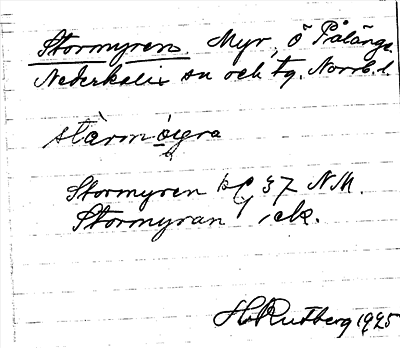 Stormyren. Myr, ö Pålänge
Nederkalix sn och tg. Norrb. l.
stàrmöyra
Stormyren bl 37 N.M.
Stormyran, ek.
H. Rutberg 1925